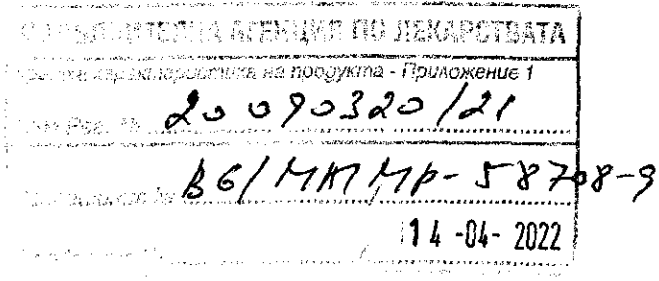 ИЗПЪЛНИТЕЛНА АГЕНЦИЯ ПО ЛЕКАРСТВАТА
Кратка характеристика на продукта - Приложение 1
Към Рег. № 20090320/21
BG/MA/MP-58708-9
14 -04- 2022